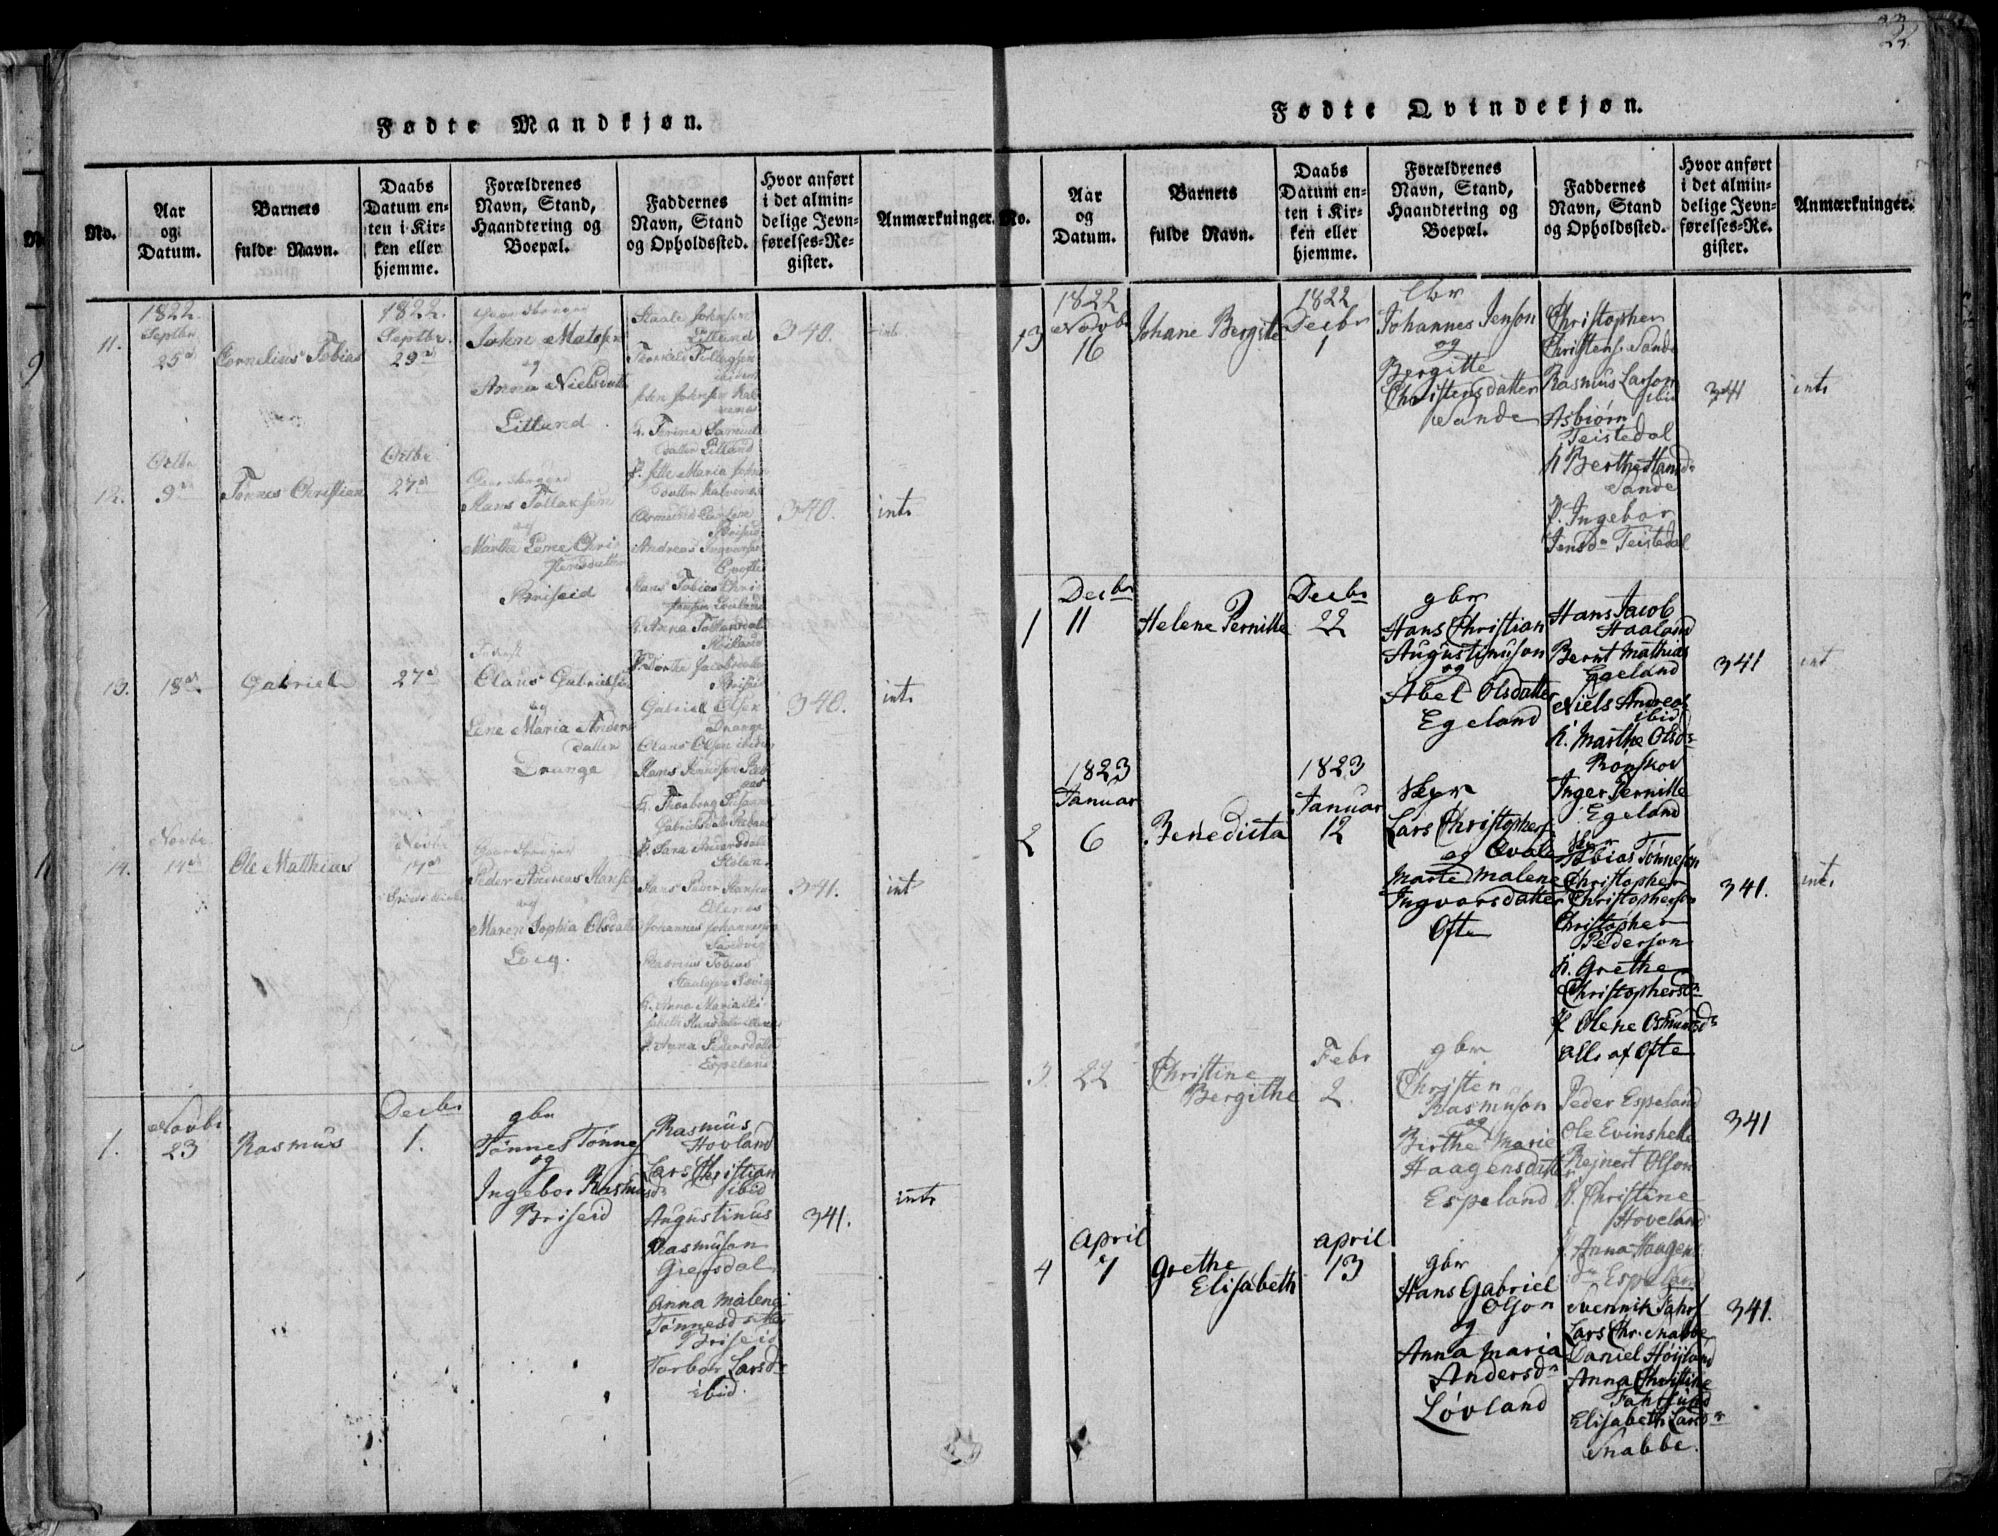 22
Fødte Mandkjøn.
No.
Aar
og
Datum.
Barnets
fulde Navn.
Daabs
Datum en-
ten i Kir-
ken eller
hjemme.
Forældrenes
Navn, Stand,
Haandtering og
Boepæl.
Faddernes
Navn, Stand
og Opholdssted.
Hvor anført
i det almin-
delige Jevn-
førelses-Re-
gister.
Anmærkninger.
1822.
Septbr
11.
25
Cornelius Tobias
1822.
Septbr.
29
John Matssen
og
Anna Nielsdatter
Litlund
Staale Johnsen
Litlund
John Johnsen
K. Serine Samuels
datter Litland
P. Maria Johns
datter
340.
int
Octbr
12.
9
Tønnes Christian
Octbr
27
Hans Tollaksen
og
Marthe Lene Chri
stensdatter
Briseid
Osmund Carlsen
Briseid
Andreas Ingvarsen
Hans Tobias Chris
tensen Lovland
K. Anna Tollaksdat
P. Dorthe Jacobsdatter
Briseid
340.
int.
13.
18
Gabriel
27
Claus Gabrielsen
og
Lene Maria Anders
datter
Drange
Gabriel Olsen
Drange
Claus Olsen ibidem
Hans Knudsen
K. Thorborg Susanne
Gabrielsdatter
P. Sara
340.
int.
Novbr
14.
14
Ole Matthias
Novbr
17
Peder Andreas Hansen
og
Maren Sophia Olsdatter
Hans Peder Hansen
Johannes Johannessen
Sandvig
Rasmus Tobias
K. Anna Maria
P. Anna Pedersdatter
Espeland
341.
int
Novbr
1.
23
Rasmus
Decbr
1.
gbr
Tønnes Tønnes
og
Ingebor Rasmusdr
Briseid
Rasmus
Hovland
Lars Christian
ibid
Augustinus
Rasmuson
Giersdal
Anna Malene
Tønnesdatter
Briseid
Torbor Larsdr
ibid.
341.
int.
Fødte Qvindekjøn.
No.
Aar
og
Datum.
Barnets
fulde Navn.
Daabs
Datum en-
ten i Kir-
ken eller
hjemme.
Forældrenes
Navn, Stand,
Haandtering og
Boepæl.
Faddernes
Navn, Stand
og Opholdssted.
Hvor anført
i det almin-
delige Jevn-
førelses-Re-
gister.
Anmærkninger.
1822
Novbr
13
16
Johane Bergitte
1822
Decbr
1
Johannes Jenson
og
Bergitte
Christensdatter
Sande
Christopher
Christens. Sande
Rasmus Larson
ibid
Asbiørn
Teistedal
K Berthe Hansdr
Sande
P. Ingebor
Jensdr Teistedal
341
int.
Decbr
1
11
Helene Pernille
Decbr
22
gbr
Hans Christian
Augustinuson
og
Abel Olsdatter
Egeland
Hans Jacob
Haaland
Bernt Mathias
Egeland
Niels Andreas
ibid
K. Marthe Olsdr
Rønskov
Inger Pernille
Egeland
341
int
1823
Januar
2
6
Benedicta
1823
Januar
12
Lars Christophers
og
Marte Malene
Ingvorsdatter
Ofte
Tobias Tønneson
Christopher
Christopherson
Christopher
Pederson
K. Grethe
Christophersdr
P Olene Osmundsdr
alle af Ofte
341.
int.
3.
22
Christine
Bergithe
Febr
2.
gbr
Christen
Rasmuson
og
Birthe Marie
Haagensdatter
Espeland
Peder Espeland
Ole Evinshelle
Reinert Olson
K. Christine
Hoveland
P. Anna Haagens
dr Espeland
341
April
4
7
Grethe
Elisabeth
April
13
gbr
Hans Gabriel
Olson
og
Anna Maria
Andersdr
Løvland
Svennik Fahrs
Lars Chr. Nabbe
Daniel Høiland
Anna Christine
Fahrsund
Elisabeth Larsdr
Nabbe.
341.